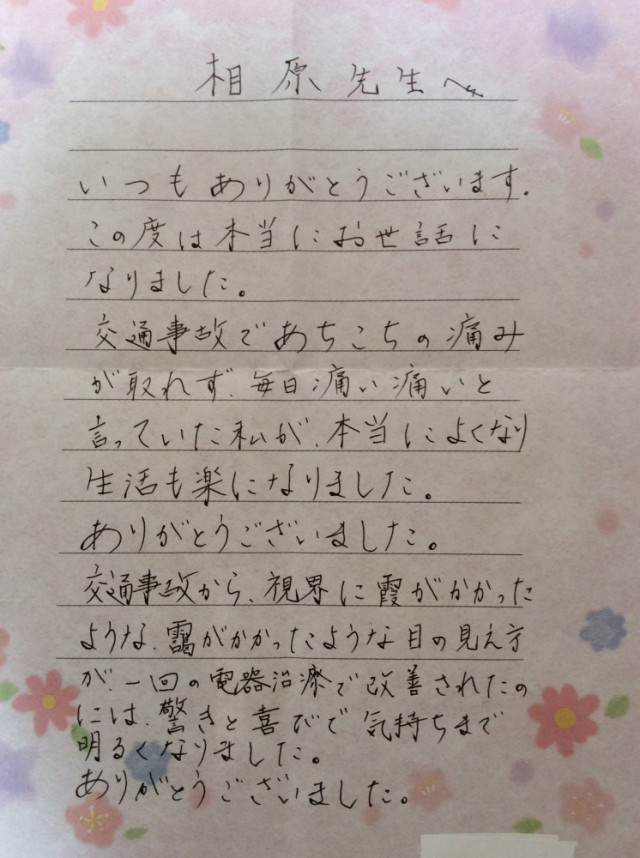 相原先生へ
いつもありがとうございます.
この度は本当にお世話に
なりました。
交通事故であちこちの痛み
が取れず、毎日痛い痛いと
言っていた私が、本当によくなり
生活も楽になりました。
ありがとうございました。
交通事故から、視界に霞がかかった
ような、靄がかかったような目の見え方
が、一回の電器治療で改善されたの
には、驚きと喜びで気持ちまで
明るくなりました。
ありがとうございました。